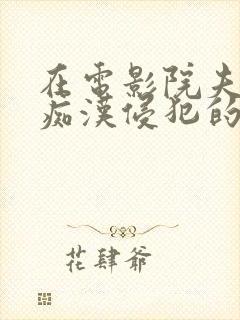 在電影院夫
痴漢侵犯的
花肆爺